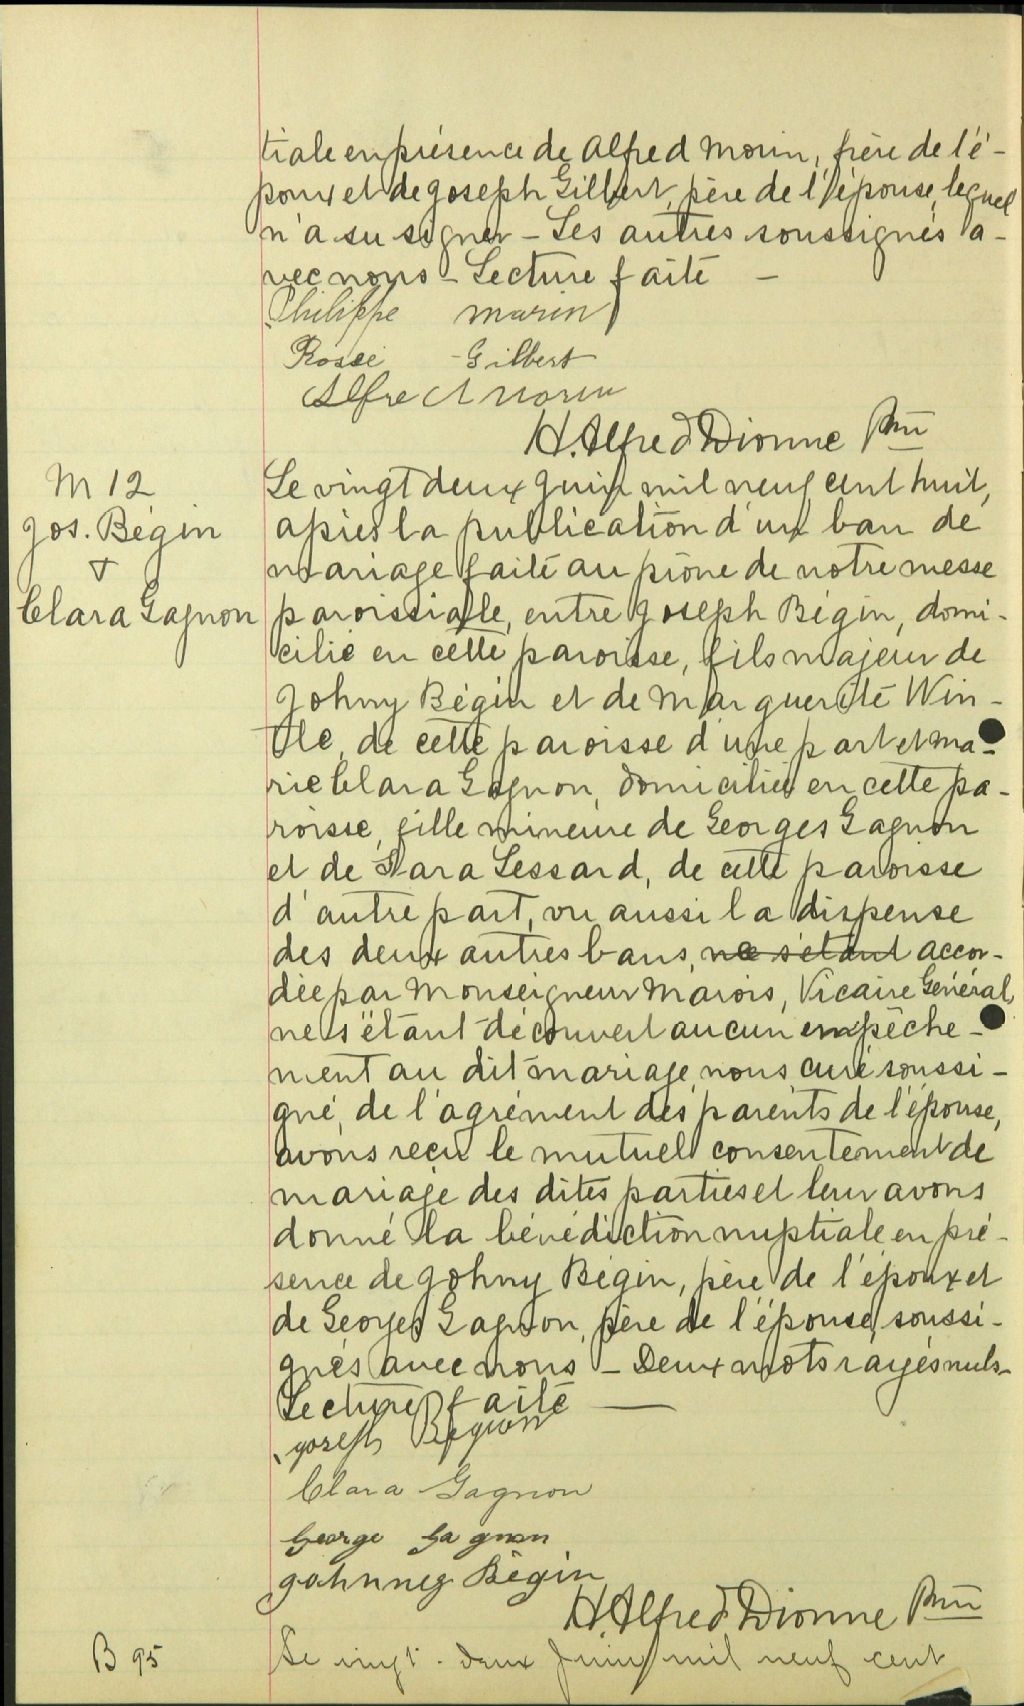 tiale en présence de Alfred Morin, frère de l'é-
poux et de Joseph Gilbert, père de l'épouse, lequel
n'a su signer - Les autres soussignés a-
vec nous - Lecture faite -
Philippe Morin
Rosée Gilbert
Alfred Morin
H. Alfred Dionne Ptre
M 12
Jos. Bégin
&
Clara Gagnon
Le vingt deux Juin mil neuf cent huit,
après la publication d'un ban de
mariage faite au prône de notre messe
paroissialle, entre Joseph Bégin, domi-
cilié en cette paroisse, fils majeur de
Johny Bégin et de Marguerite Win-
tle, de cette paroisse d'une part et Ma-
rie Clara Gagnon, domiciliée en cette pa-
roisse, fille mineure de Georges Gagnon
et de Clara Lessard, de cette paroisse
d'autre part, vu aussi la dispense
des deux autres bans, ne s'étant accor-
dée par Monseigneur Marois, Vicaire Général,
ne s'étant découvert aucun empêche-
ment au dit mariage, nous curé soussi-
gné, de l'agrément des parents de l'épouse,
avons reçu le mutuel consentement de
mariage des dites parties et leur avons
donné la bénédiction nuptiale en pré-
sence de Johny Bégin, père de l'époux et
de Georges Gagnon, père de l'épouse, soussi-
gnés avec nous - Deux mots rayés nuls -
Lecture faite -
Joseph Bégin
Clara Gagnon
George Gagnon
Johnney Bégin
H. Alfred Dionne Ptre
B 95
Le vingt-deux Juin mil neuf cent